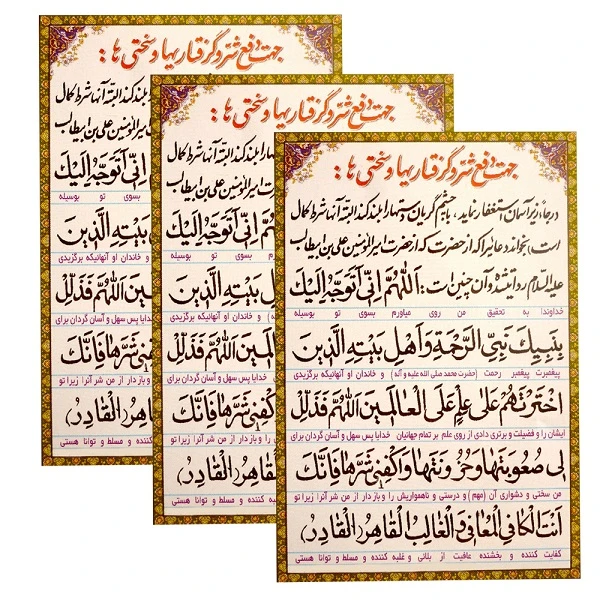 جهت دفع شر و گرفتاریها و سختی ها:
در جاء زیر آسمان استغفار نماید، با چشم گریان و دستها را بلند کند البته آنها شرط کمال
است، بخواند دعائیرا که از حضرت که از حضرت امیرالمؤمنین علی بن ابیطالب
علیه السّلام روایت شده و آن چنین است: اَللّهُمَّ اِنّی اَتَوَجَّهُ اِلَیْكَ
خداوندا به تحقیق من روی میاورم بسوی تو بوسیله
بِنَبِیِّكَ نَبِیِّ الرَّحْمَةِ وَ اَهْلِ بَیْتِهِ الَّذینَ
پیغمبرت پیغمبر رحمت (حضرت محمد صلی الله علیه و آله) و خاندان او آنهائیکه برگزیدی
اخْتَرْتَهُمْ عَلی عِلْمٍ عَلَی الْعالَمینَ اَللّهُمَّ فَذَلِّلْ
ایشان را و فضیلت و برتری دادی از روی علم بر تمام جهانیان خدایا پس سهل و آسان گردان برای
لی صُعُوبَتَها وَ حُزُونَتَها وَ اکْفِنی شَرَّها فَاِنَّكَ
من سختی و دشواری آن (مهم) و درستی و ناهمواریش را و باز دار از من شر آنرا زیرا تو
اَنْتَ الْکافِی الْمُعافی وَ الْغالِبُ الْقاهِرُ (الْقادِرُ)
کفایت کننده و بخشنده عافیت از بلائی و غلبه کننده و مسلط و توانا هستی